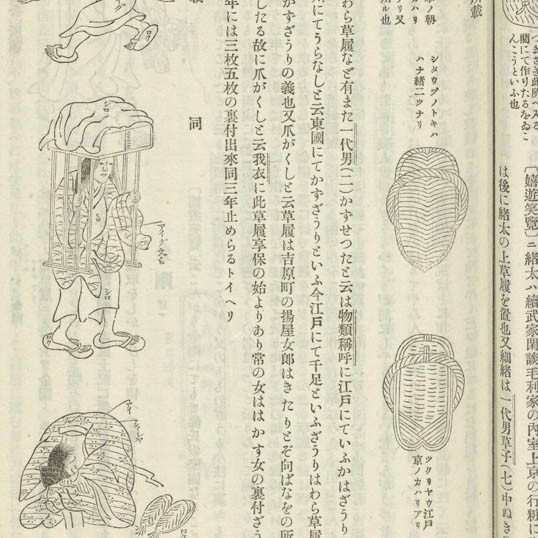 つまさき此所へ入る
藺にて作りたるをゐこ
んこうといふ也
〔嬉遊笑覽〕ニ緒太ハ續武家閑談毛利家の內室上京の行粧に
は後に緒太の上草履を置也又細緒は一代男草子(七)中ぬき
所載
シタウヅノトキハ
ハナ緒二ツナリ
ツクリヤウ江戶
京ノカハリアリ
わら草履など有また一代男(二)かすせつたと云は物類稱呼に江戶にていふかはざうり
にてうらなしと云東國にてかずざうりといふ今江戶にて千足といふざうりはわら草履
かずざうりの義也又爪がくしと云草履は吉原町の揚屋女郞はきたりとぞ向ばなをの所
したる故に爪がくしと云我衣に此草履享保の始よりあり常の女ははかず女の裏付ざう
年には三枚五枚の裏付出來同三年止めらるトイヘリ
同
シロ